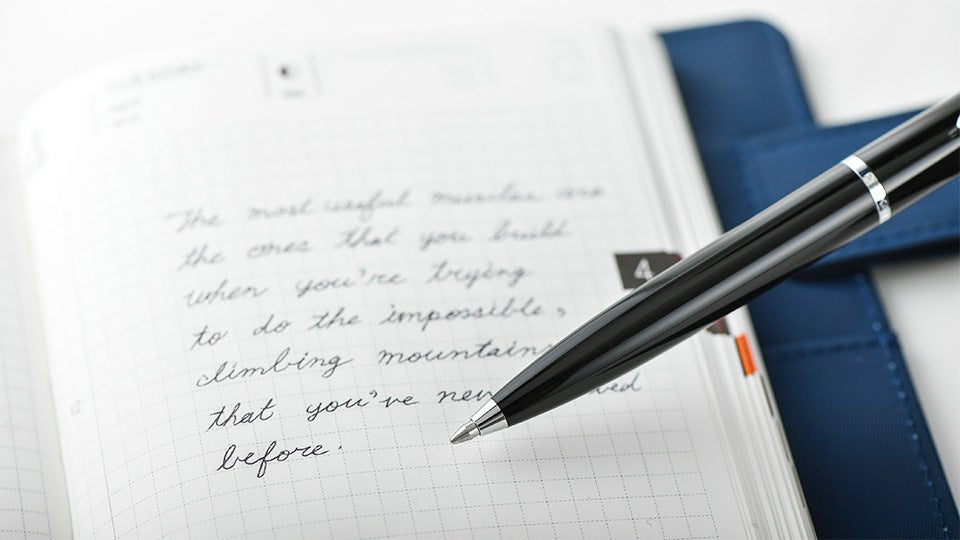 TUESDAY
The most useful muscles are
the ones that you build
when you're trying
to do the impossible,
climbing mountains
that you've
before.
4
12